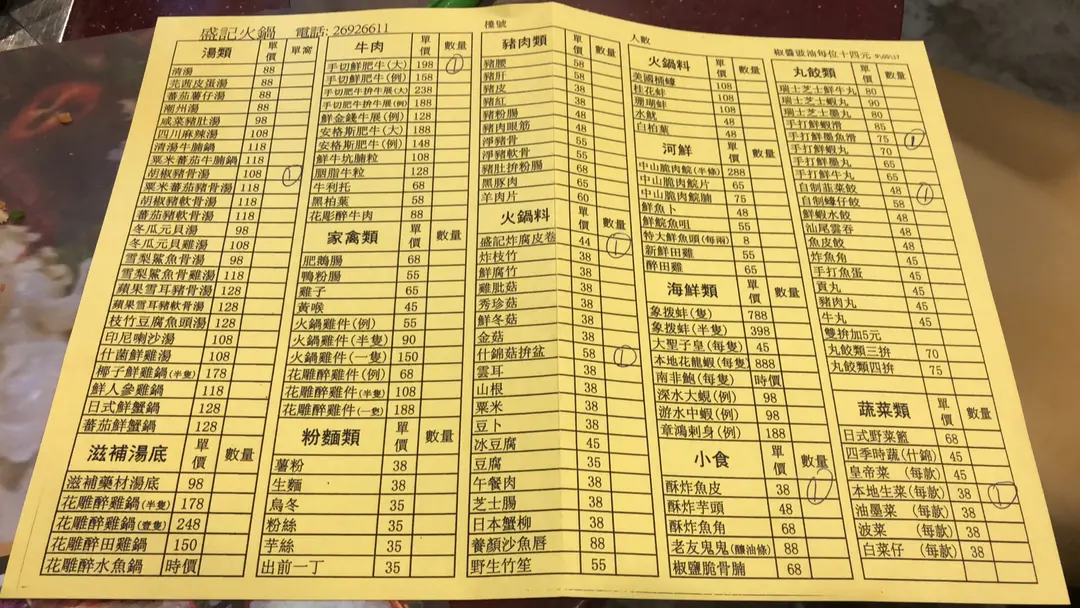 盛記火鍋 電話: 26926611
檯號
人數
椒醬豉油每位十四元
湯類 單價 單窩
清湯 88
芫茜皮蛋湯 88
蕃茄薯仔湯 88
潮州湯 88
咸菜豬肚湯 98
四川麻辣湯 108
清湯牛腩鍋 118
粟米蕃茄牛腩鍋 118
胡椒豬骨湯 108 1
粟米蕃茄豬骨湯 118
胡椒豬軟骨湯 118
蕃茄豬軟骨湯 118
冬瓜元貝湯 98
冬瓜元貝雞湯 108
雪梨鯊魚骨湯 98
雪梨鯊魚骨雞湯 118
蘋果雪耳豬骨湯 118
蘋果雪耳豬軟骨湯 128
枝竹豆腐魚頭湯 128
印尼喇沙湯 108
什菌鮮雞湯 108
椰子鮮雞鍋(半隻) 178
鮮人參雞鍋 118
日式鮮蟹鍋 128
蕃茄鮮蟹鍋 128
滋補湯底 單價 數量
滋補藥材湯底 98
花雕醉雞鍋(半隻) 178
花雕醉雞鍋(壹隻) 248
花雕醉田雞鍋 150
花雕醉水魚鍋 時價
牛肉 單價 數量
手切鮮肥牛(大) 198 1
手切鮮肥牛(例) 158
手切肥牛拚牛展(大) 238
手切肥牛拚牛展(例) 188
鮮金錢牛展(例) 128
安格斯肥牛(大) 188
安格斯肥牛(例) 148
鮮牛坑腩粒 108
胭脂牛粒 128
牛利托 68
黑柏葉 58
花彫醉牛肉 88
家禽類 單價 數量
肥鵝腸 68
鴨粉腸 55
雞子 65
黃喉 45
火鍋雞件(例) 55
火鍋雞件(半隻) 90
火鍋雞件(一隻) 150
花雕醉雞件(例) 68
花雕醉雞件(半隻) 108
花雕醉雞件(一隻) 188
粉麵類 單價 數量
薯粉 38
生麵 38
烏冬 35
粉絲 35
芋絲 35
出前一丁 35
豬肉類 單價 數量
豬腰 58
豬肝 58
豬皮 38
豬紅 38
豬粉腸 48
豬肉眼筋 48
淨豬骨 55
淨豬軟骨 55
豬肚拚粉腸 68
黑豚肉 55
羊肉片 60
火鍋料 單價 數量
盛記炸腐皮卷 44 1
炸枝竹 38
鮮腐竹 38
雞肶菇 38
秀珍菇 38
鮮冬菇 38
金菇 38
什錦菇拚盆 58 1
雲耳 38
山根 38
粟米 38
豆卜 38
冰豆腐 45
豆腐 35
午餐肉 38
芝士腸 38
日本蟹柳 38
養顏沙魚唇 88
野生竹笙 55
火鍋料 單價 數量
美國桶蠔 108
桂花蚌 108
珊瑚蚌 108
水魷 48
白柏葉 48
河鮮 單價 數量
中山脆肉皖(半條) 288
中山脆肉皖片 65
中山脆肉皖腩 75
鮮魚卜 48
鮮皖魚咀 55
特大鮮魚頭(每兩) 8
新鮮田雞 55
醉田雞 65
海鮮類 單價 數量
象拨蚌(隻) 788
象拨蚌(半隻) 398
大聖子皇(每隻) 45
本地花龍蝦(每隻) 888
南非鮑(每隻) 時價
深水大蜆(例) 98
游水中蝦(例) 98
章鴻刺身(例) 188
小食 單價 數量
酥炸魚皮 38 1
酥炸芋頭 48
酥炸魚角 68
老友鬼鬼(釀油條) 88
椒鹽脆骨腩 68
丸餃類 單價 數量
瑞士芝士鮮牛丸 80
瑞士芝士蝦丸 90
瑞士芝士墨丸 80
手打鮮蝦滑 85
手打鮮墨魚滑 75 1
手打鮮蝦丸 70
手打鮮墨丸 65
手打鮮牛丸 65
自制韮菜餃 48 1
自制蠔仔餃 58
鮮蝦水餃 48
汕尾雲吞 48
魚皮餃 48
炸魚角 45
手打魚蛋 45
貢丸 45
豬肉丸 45
牛丸 45
雙拚加5元
丸餃類三拚 70
丸餃類四拚 75
蔬菜類 單價 數量
日式野菜籃 68
四季時蔬(什錦) 45
皇帝菜 (每款) 45
本地生菜(每款) 38 1
油墨菜 (每款) 38
菠菜 (每款) 38
白菜仔 (每款) 38